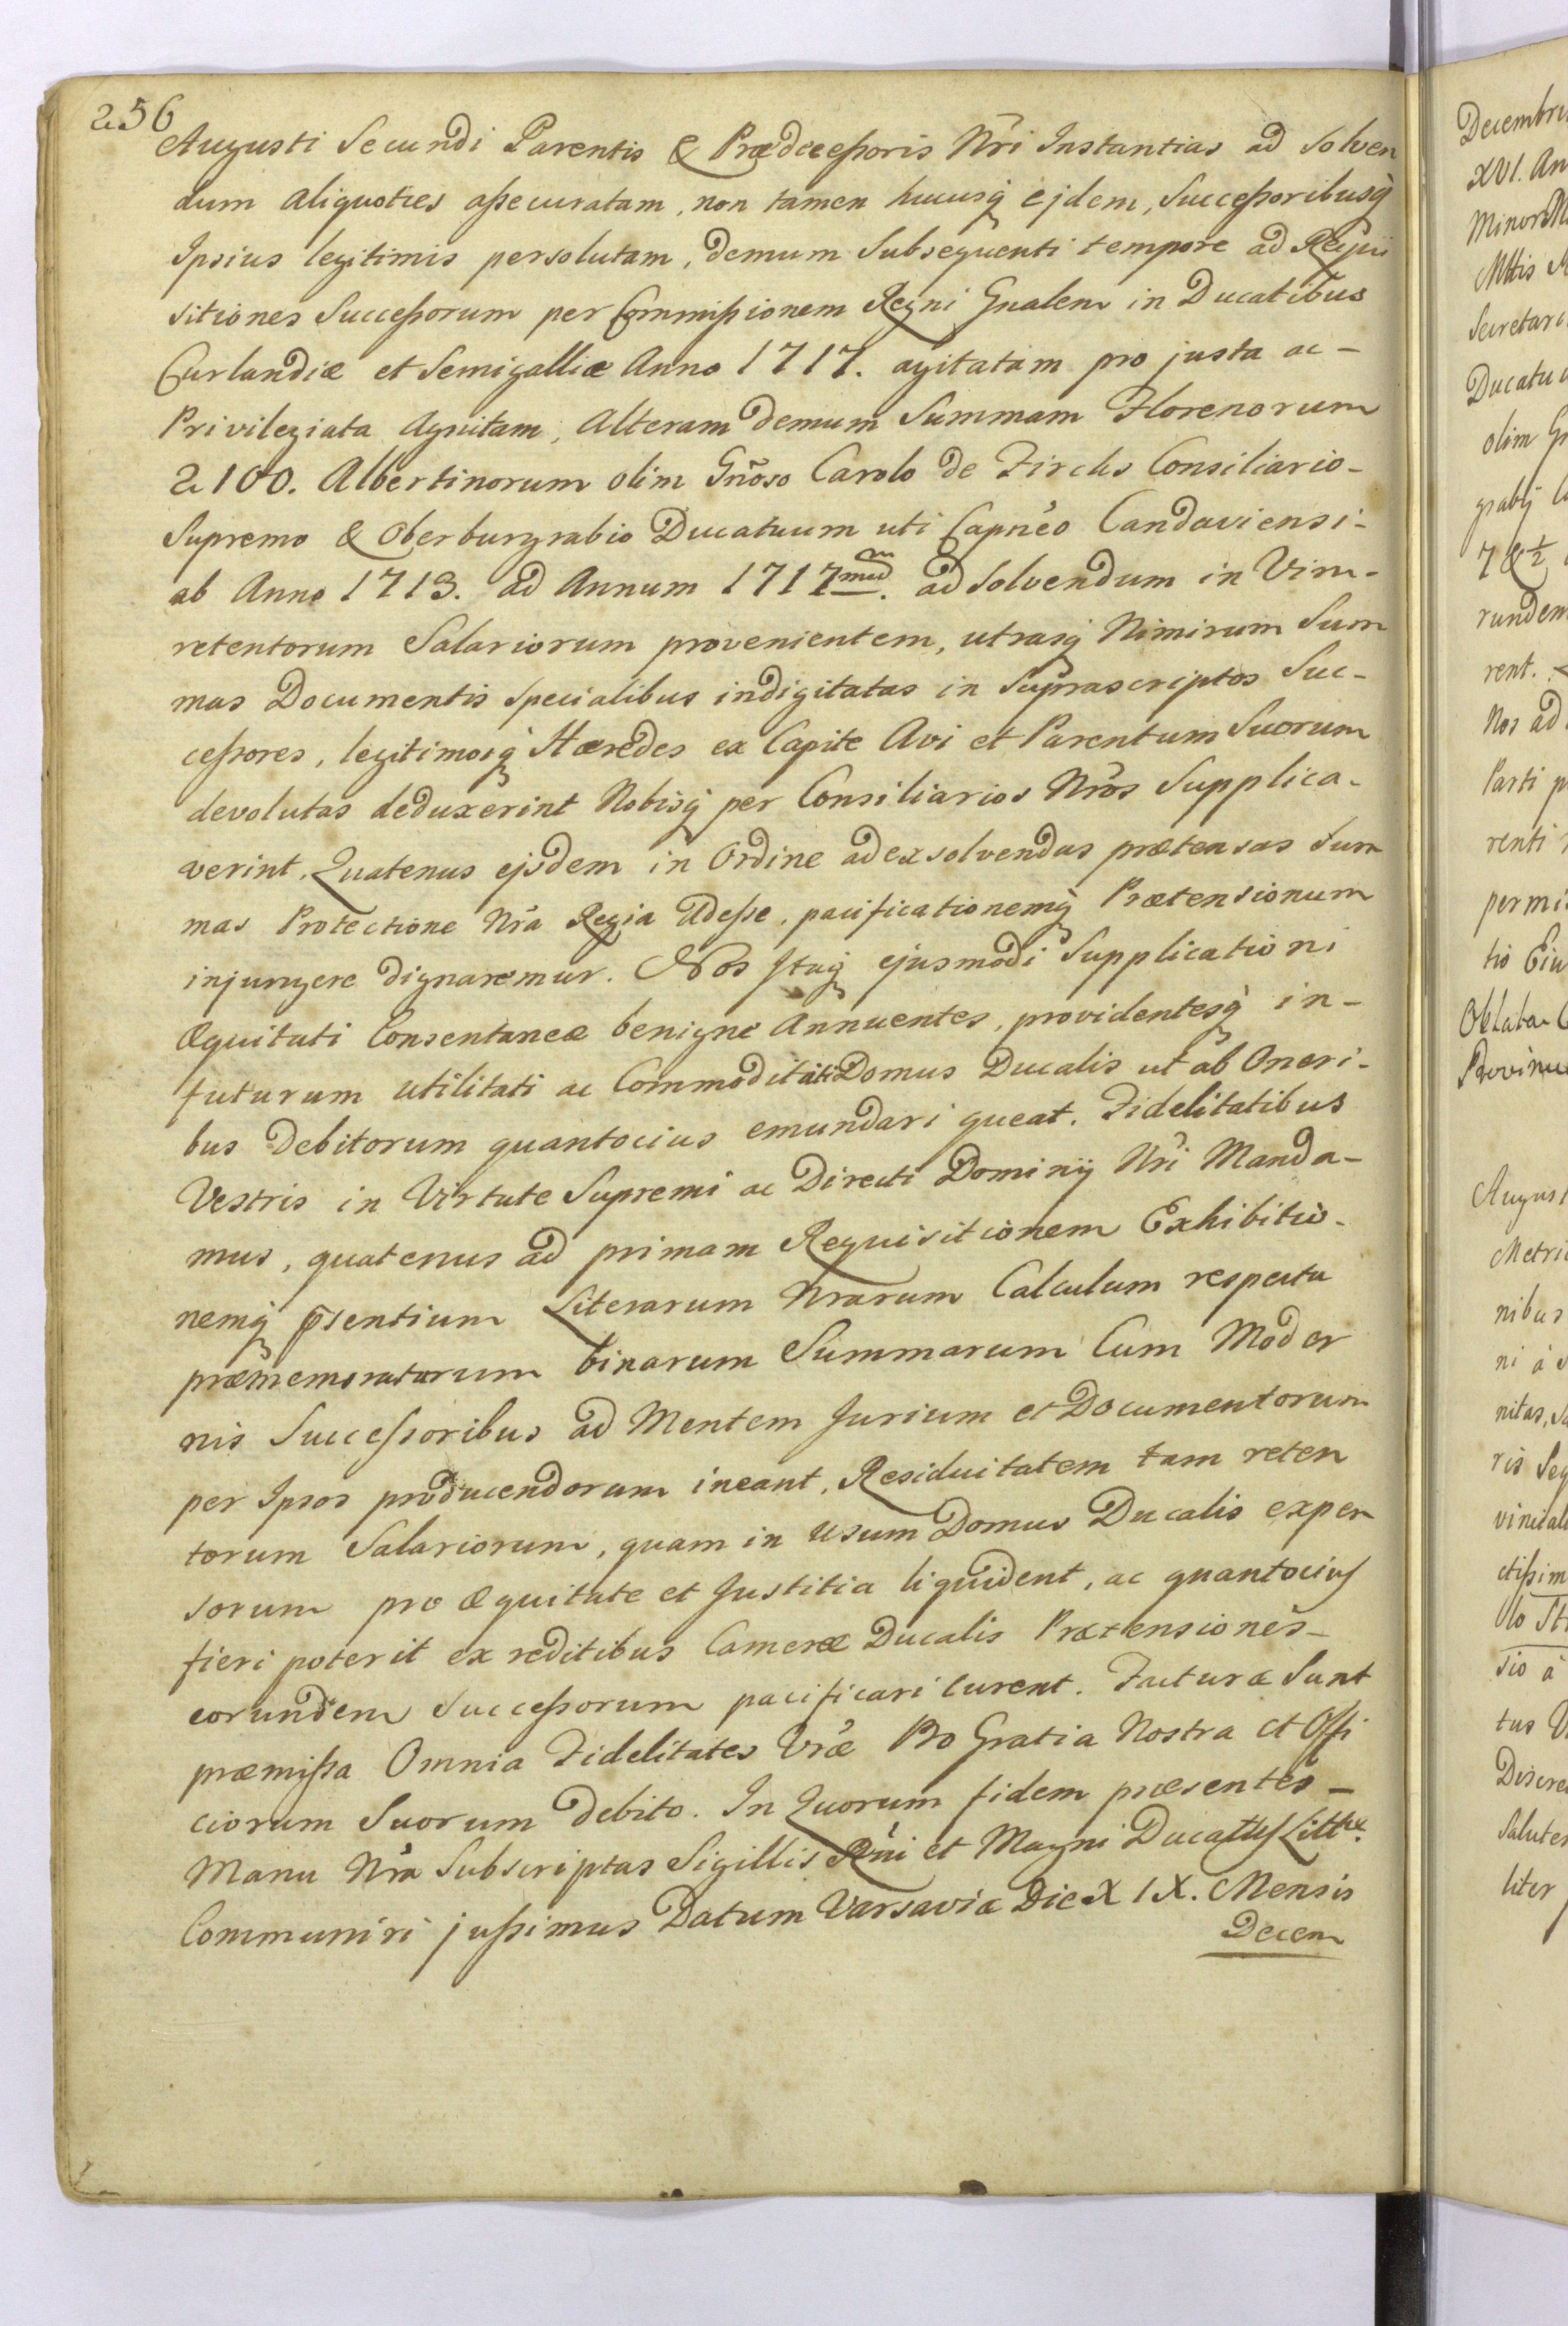 256
Augusti Secundi Parentis & Prædecessoris Nri Instantias ad Solven
dum aliquoties assecuratam, non tamen hucusq ejdem, Successoribusq
Ipsius legitimis persolutam, demum Subsequenti tempore ad Requi
sitiones Successorum per Commissionem Regni Gnalem in Ducatibus
Curlandiæ et Semigalliæ Anno 1717. agitatam pro justa ac-
Privilegiata Agnitam, Alteram demum Summam Florenorum
2100. Albertinorum olim Gñoso Carolo de Fircks Consiliario-
Supremo & Oberburgrabio Ducatuum uti Capneo Candaviensi-
ab Anno 1713. ad Annum 1717mum. ad Solvendum in Vim-
retentorum Salariorum provenientem, utrasq Nimirum Sum
mas Documentis Specialibus indigitatas in Suprascriptos Suc-
cessores, legitimosq Hæredes ex Capite Avi et Parentum Suorum
devolutas deduxerint Nobisq per Consiliarios Nros Supplica-
verint, Quatenus ejsdem in Ordine ad exsolvendas prætensas Sum
mas Protectione Nra Regia Adesse, pacificationemq Prætensionum
injungere dignaremur. Nos Itaq ejusmodi Supplicationi
Æquitati Consentaneæ benigne Annuentes, providentesq in-
futurum utilitati ac Commoditati Domus Ducalis ut ab Oneri-
bus Debitorum quantocius emundari queat. Fidelitatibus
Vestris in Virtute Supremi ac Directi Dominij Nri Manda-
mus, quatenus ad primam Requisitionem Exhibitio-
nemq pñsentium Literarum Nrarum Calculum respectu
præmemoratarum binarum Summarum Cum Moder
nis Successoribus ad Mentem Jurium et Documentorum
per Ipsos producendorum ineant, Residuitatem tam reten
torum Salariorum, quam in usum Domus Ducalis expen
sorum pro Æquitate et Justitia liquident, ac quantocius
fieri poterit ex reditibus Cameræ Ducalis Prætensiones-
eorundem Successorum pacificari curent. Facturæ Sunt
præmissa Omnia Fidelitates Vræ Pro Gratia Nostra et Offi
ciorum Suorum debito. In Quorum fidem præsentes-
Manu Nra Subscriptas Sigillis Rni et Magni Ducatus Litthæ
Communiri jussimus Datum Varsaviæ Die XIX. Mensis
Decem
Decembri
XVI. An
Minor
Mttis
Secretari
Ducatu
olim
grabij
7 & ½
rent.
Nos ad
Parti p
renti
permi
tio
Oblata
August
Metri
nibus
ni à
nitas,
ris
sio à
tus
Salute
liter